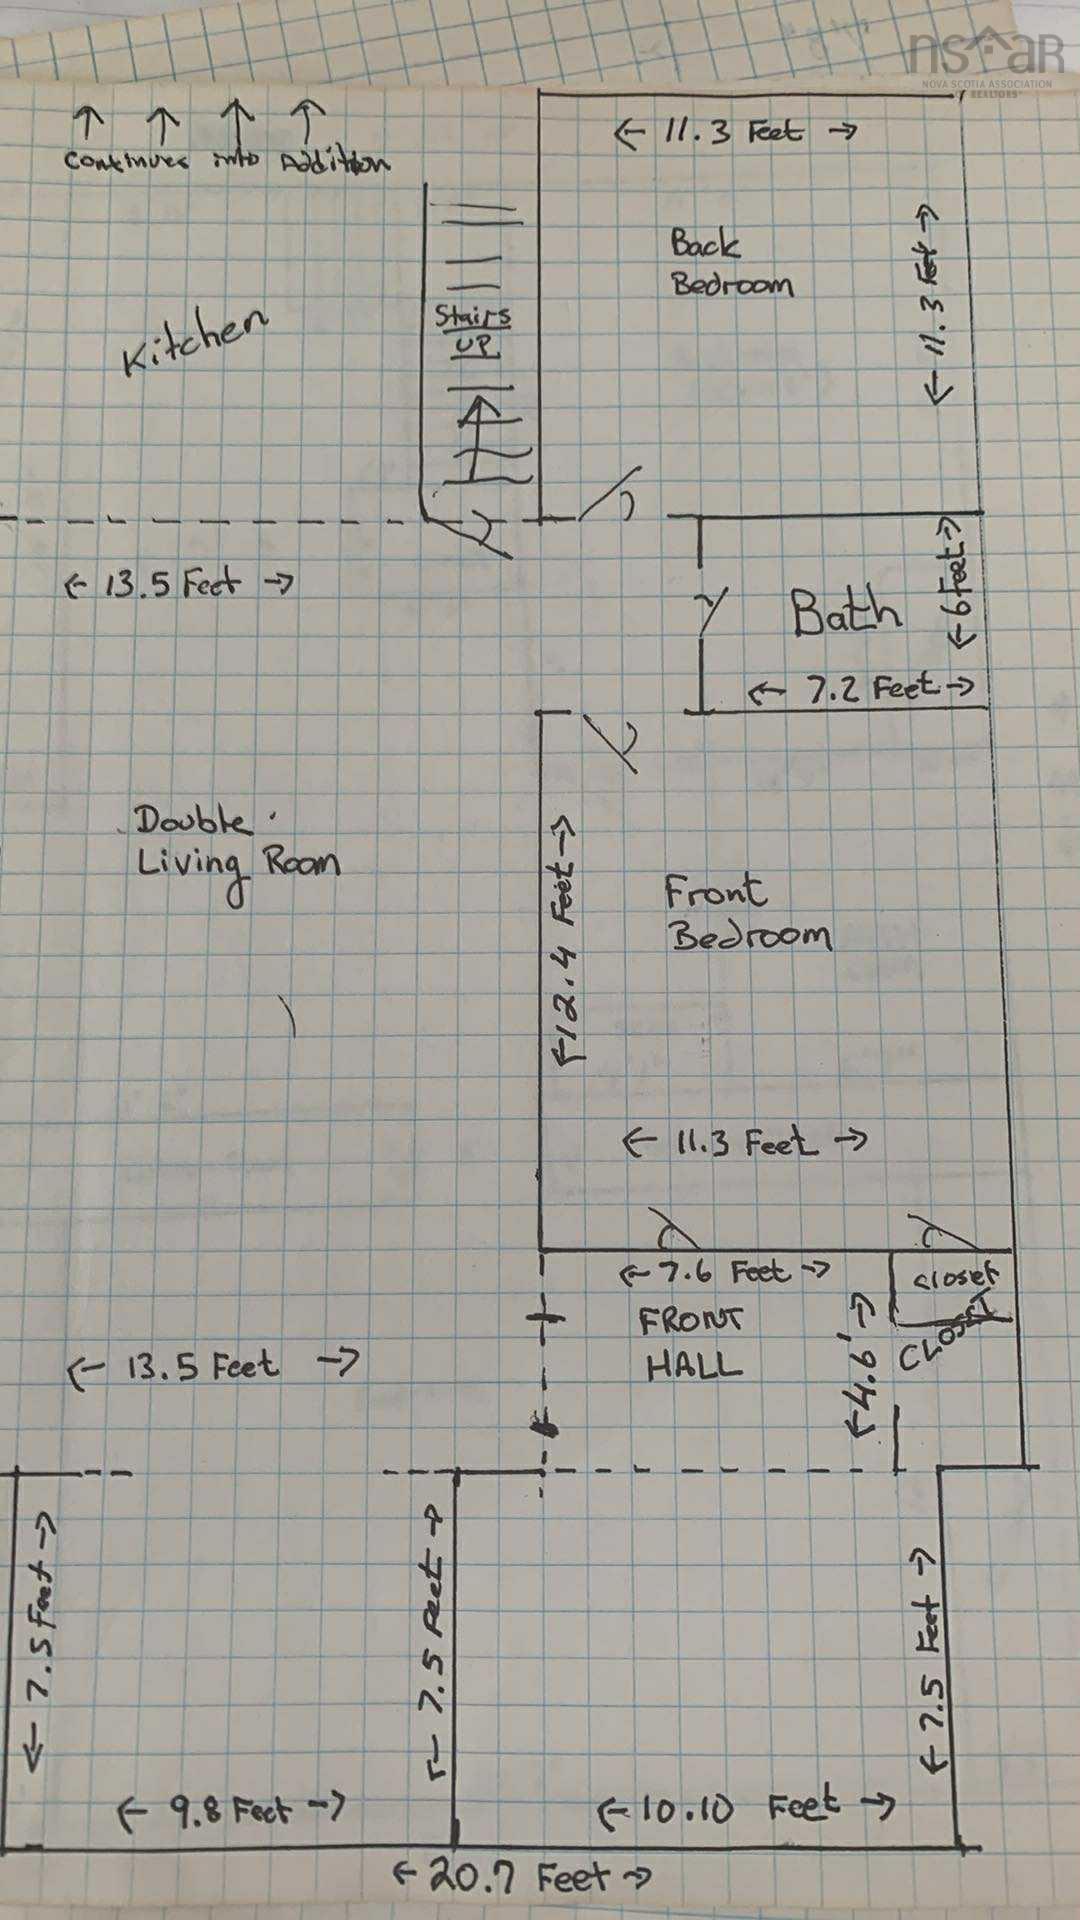 nsAAR
NOVA SCOTIA ASSOCIATION
OF REALTORS®
← 11.3 Feet →
Continues into Addition
Back
Bedroom
← 11.3 Feet →
Kitchen
Stairs
UP
← 13.5 Feet →
Bath
← 6 Feet →
← 7.2 Feet →
Double
Living Room
← 12.4 Feet →
Front
Bedroom
← 11.3 Feet →
← 7.6 Feet →
closet
FRONT
HALL
CLOSET
← 4.6' →
← 13.5 Feet →
← 7.5 Feet →
← 7.5 Feet →
← 7.5 Feet →
← 9.8 Feet →
← 10.10 Feet →
← 20.7 Feet →